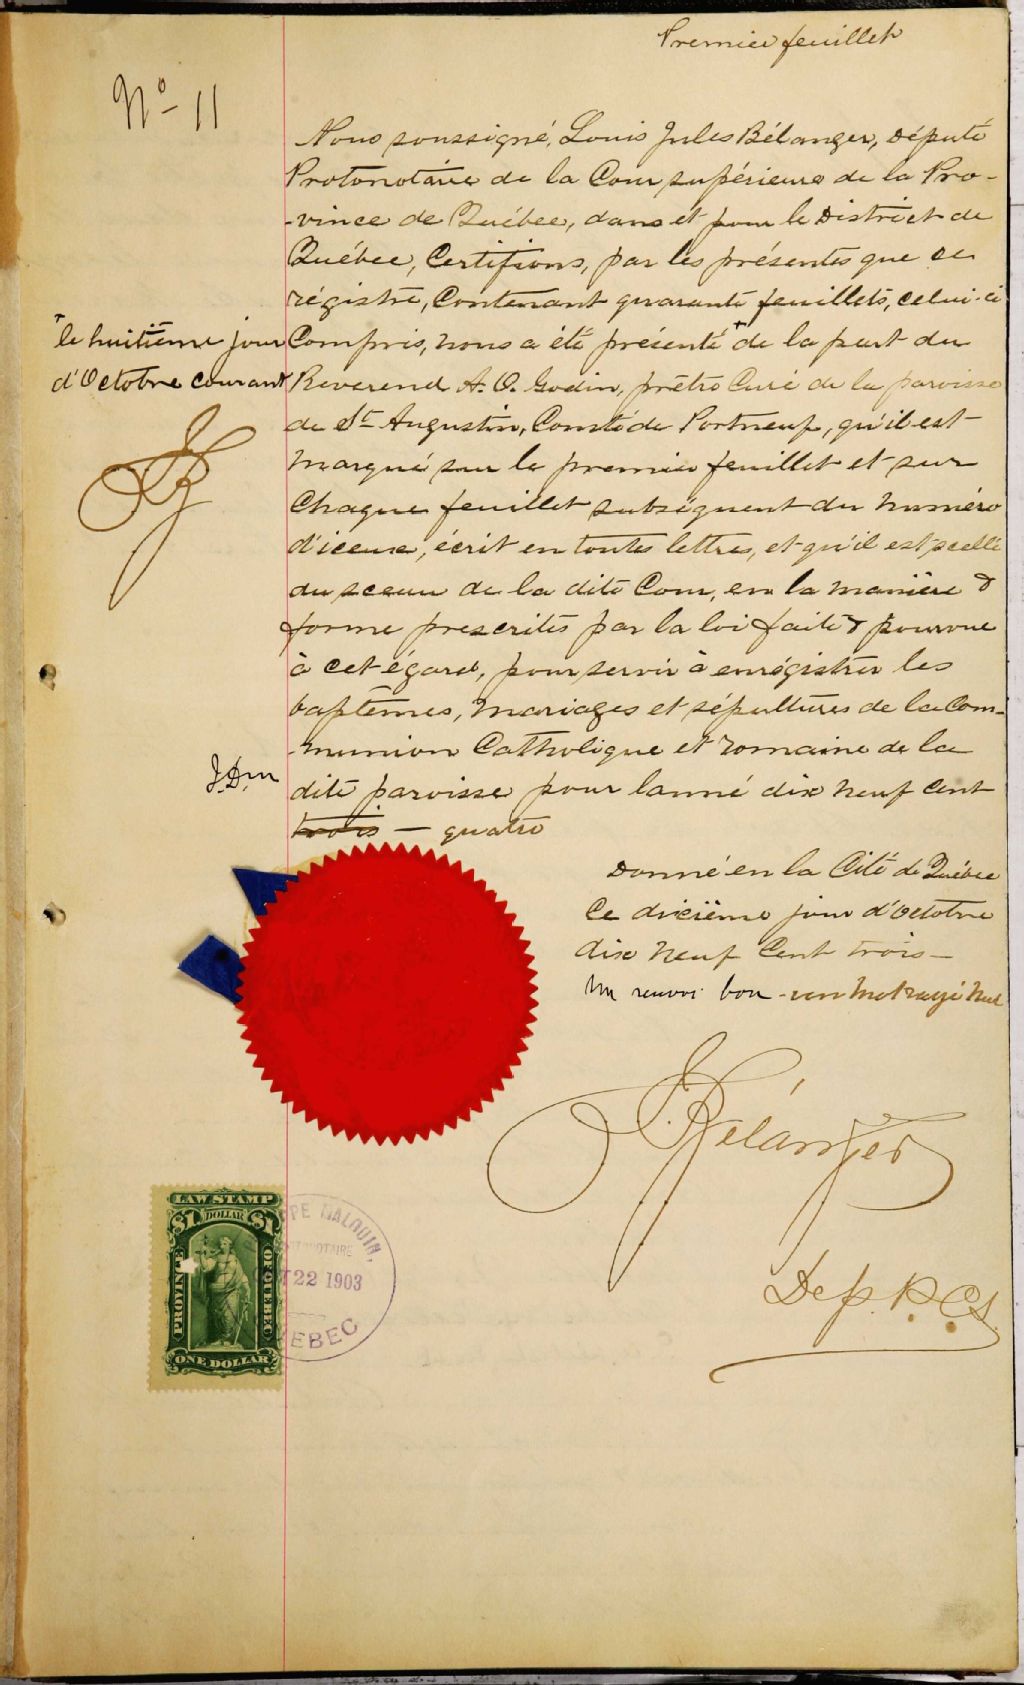 Premier feuillet
No 11
Nous soussigné, Louis Jules Bélanger, Député
Protonotaire de la Cour supérieure de la Pro-
-vince de Québec, dans et pour le District de
Québec, Certifions, par les présentes que ce
régistre, Contenant quarante feuillets, celui-ci
Compris, nous a été présenté + de la part du
+ le huitième jour
d'Octobre courant
Reverend A. O. Godin, prêtre Curé de la paroisse
de St Augustin, Comté de Portneuf, qu'il est
marqué sur le premier feuillet et sur
Chaque feuillet subséquent du numéro
d'iceux, écrit en toutes lettres, et qu'il est scellé
du sceau de la dite Cour, en la manière &
forme prescrites par la loi faite & pourvue
à cet égard, pour servir à enrégistrer les
baptêmes, mariages et sépultures de la Com-
-munion Catholique et romaine de la
J.D.m
dite paroisse pour lanné dix neuf cent
trois — quatre
Donné en la Cité de Québec
Ce dixième jour d'Octobre
dix neuf cent trois —
Un renvoi bon - un mot rayé nul
Bélanger
Dep. P. C. S.
LAW STAMP
$1 DOLLAR $1
PROVINCE OF QUEBEC
ONE DOLLAR
MALOUIN,
22 1903
EBEC